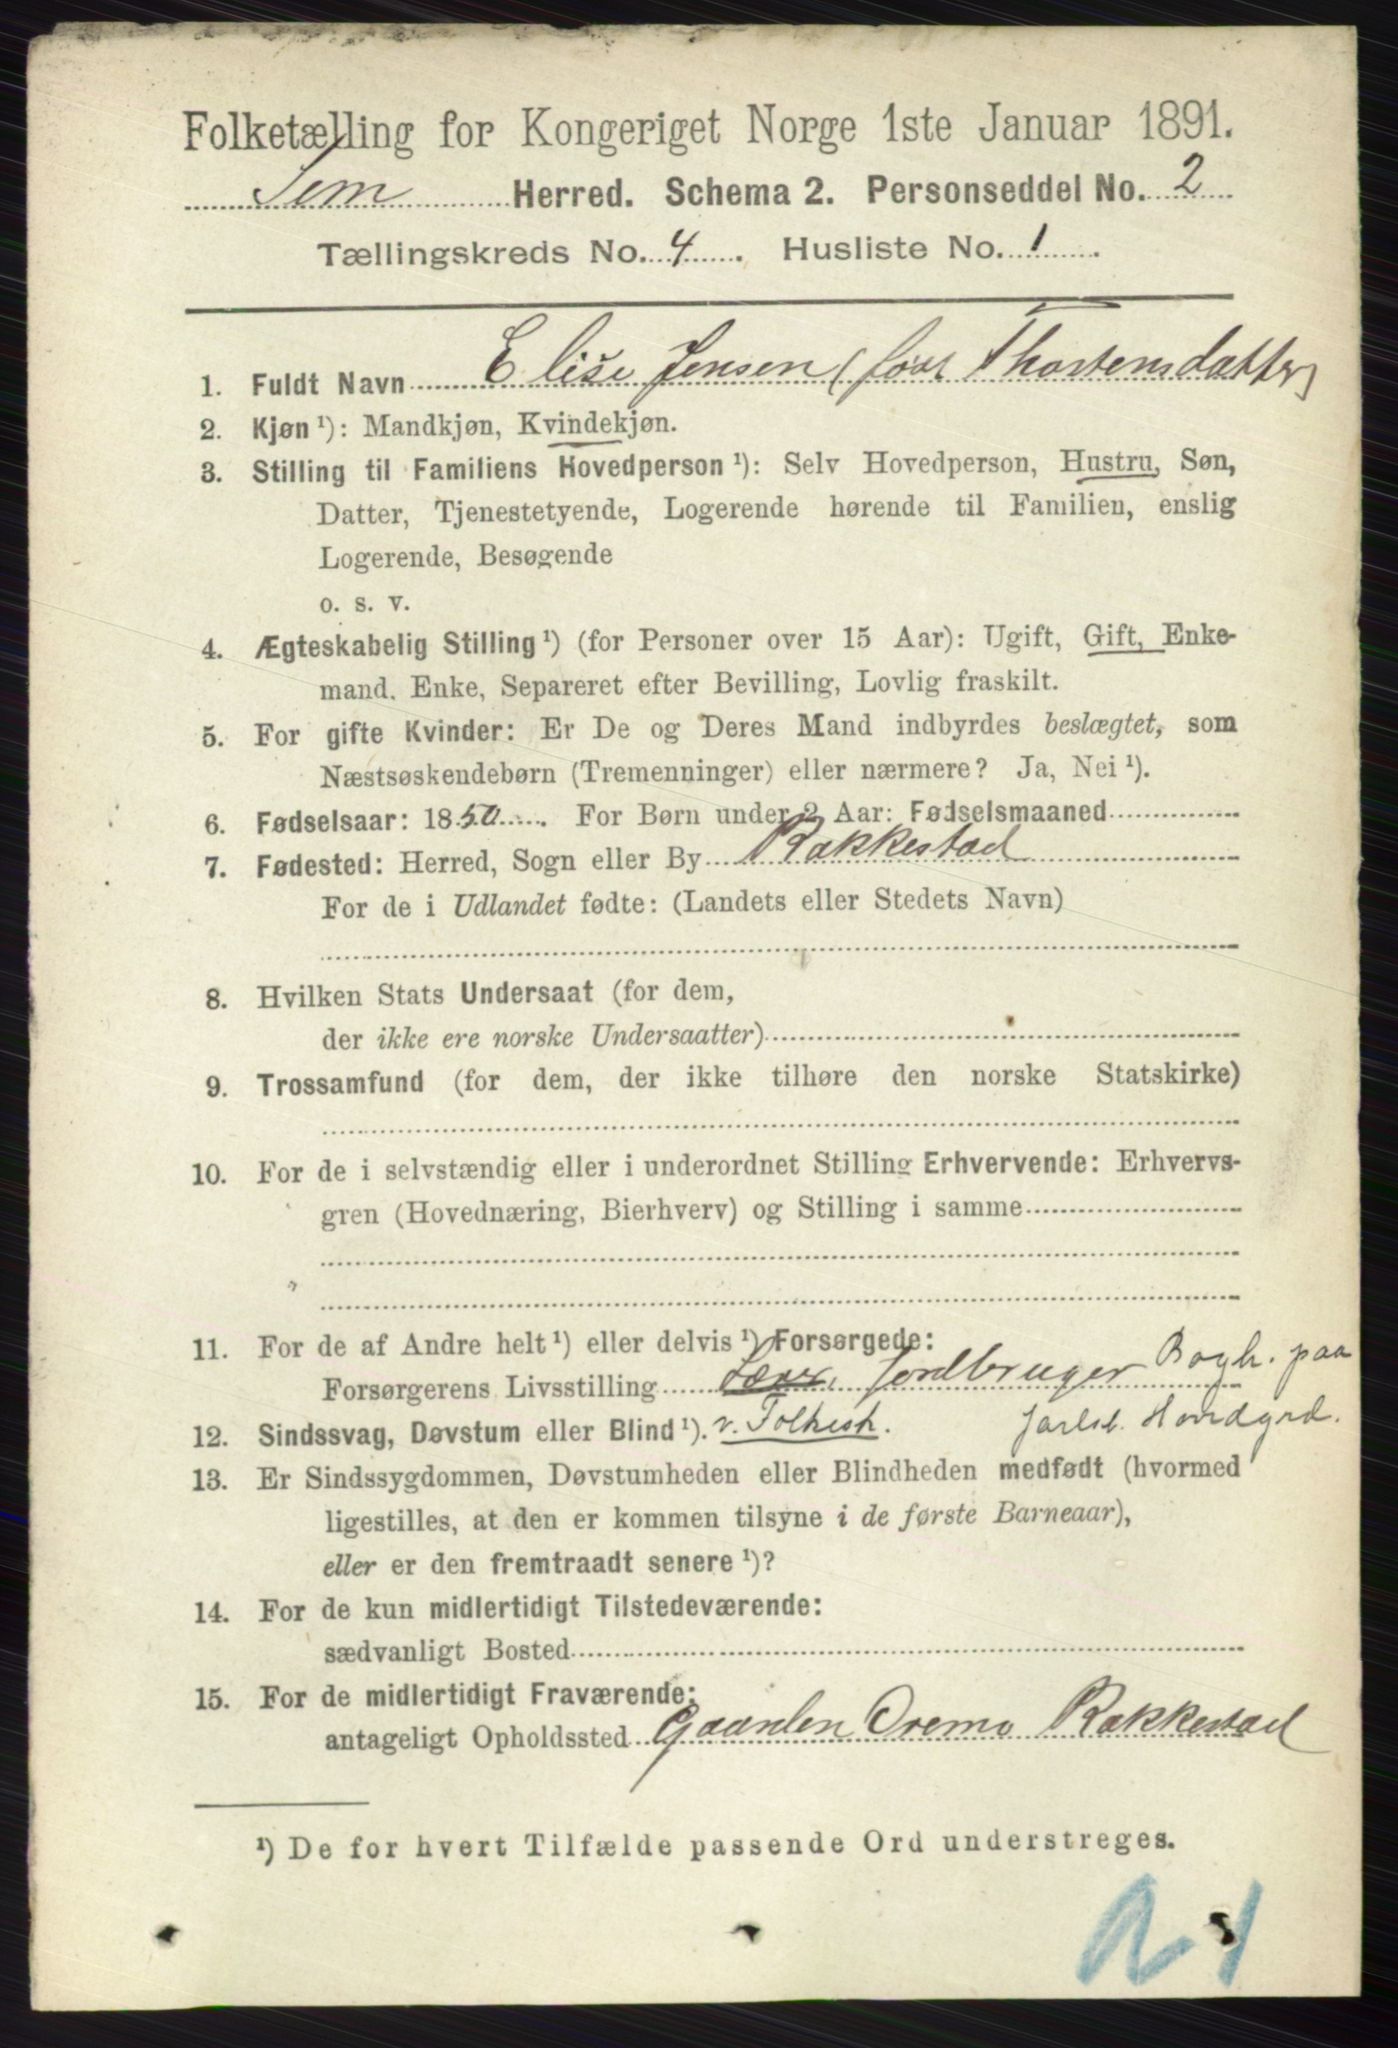 Folketælling for Kongeriget Norge 1ste Januar 1891.
Sem Herred. Schema 2. Personseddel No. 2
Tællingskreds No. 4. Husliste No. 1.
1. Fuldt Navn Elise Jensen (født Thorstensdatter)
2. Kjøn ¹): Mandkjøn, Kvindekjøn.
3. Stilling til Familiens Hovedperson ¹): Selv Hovedperson, Hustru, Søn,
Datter, Tjenestetyende, Logerende hørende til Familien, enslig
Logerende, Besøgende
o. s. v.
4. Ægteskabelig Stilling ¹) (for Personer over 15 Aar): Ugift, Gift, Enke-
mand, Enke, Separeret efter Bevilling, Lovlig fraskilt.
5. For gifte Kvinder: Er De og Deres Mand indbyrdes beslægtet, som
Næstsøskendebørn (Tremenninger) eller nærmere? Ja, Nei ¹).
6. Fødselsaar: 1850. For Børn under 2 Aar: Fødselsmaaned
7. Fødested: Herred, Sogn eller By Rakkestad
For de i Udlandet fødte: (Landets eller Stedets Navn)
8. Hvilken Stats Undersaat (for dem,
der ikke ere norske Undersaatter)
9. Trossamfund (for dem, der ikke tilhøre den norske Statskirke)
10. For de i selvstændig eller i underordnet Stilling Erhvervende: Erhvervs-
gren (Hovednæring, Bierhverv) og Stilling i samme
11. For de af Andre helt ¹) eller delvis ¹) Forsørgede:
Forsørgerens Livsstilling Lærer, Jordbruger Bogh. paa
12. Sindssvag, Døvstum eller Blind ¹). v. Folkesk. Jarlsb. Hovedgrd.
13. Er Sindssygdommen, Døvstumheden eller Blindheden medfødt (hvormed
ligestilles, at den er kommen tilsyne i de første Barneaar),
eller er den fremtraadt senere ¹)?
14. For de kun midlertidigt Tilstedeværende:
sædvanligt Bosted
15. For de midlertidigt Fraværende:
antageligt Opholdssted Gaarden Rakkestad
¹) De for hvert Tilfælde passende Ord understreges.